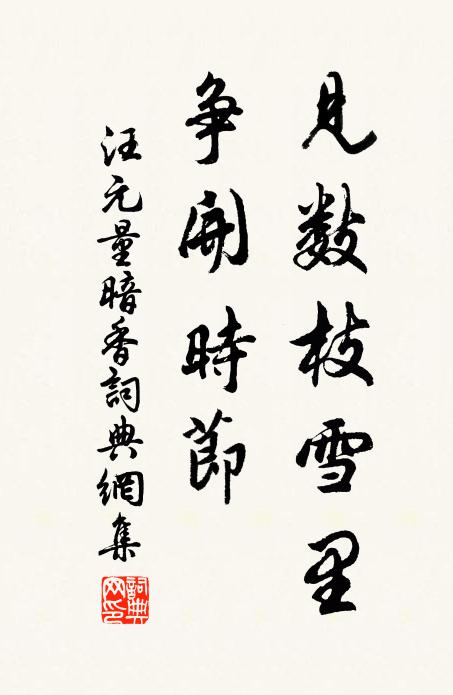 見數枝雪里
爭開時節
汪元量暗香詞典網集
詞典網印